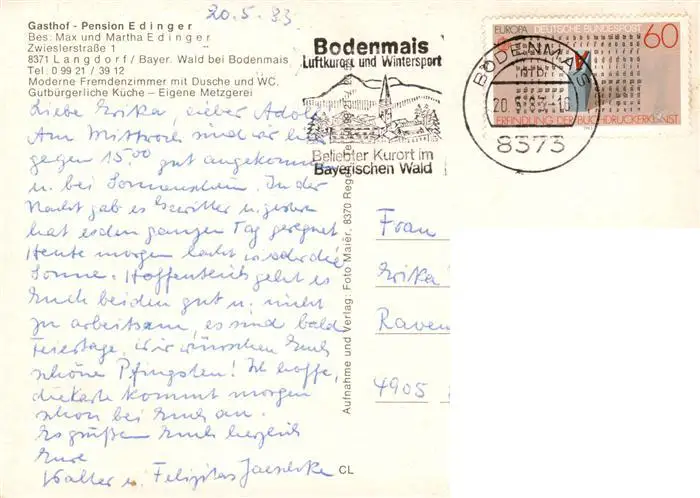 20.5.83
Gasthof - Pension Edinger
Bes: Max und Martha Edinger
Zwieslerstraße 1
8371 Langdorf / Bayer. Wald bei Bodenmais
Tel: 0 99 21 / 39 12
Moderne Fremdenzimmer mit Dusche und WC.
Gutbürgerliche Küche – Eigene Metzgerei
Liebe Erika, lieber Adolf
Am Mittwoch sind wir hier
gegen 15.00 gut angekommen
u. bei Sonnenschein. In der
Nacht gab es Gewitter u. gestern
hat es den ganzen Tag geregnet
Heute morgen lacht wieder die
Sonne. Hoffentlich geht es
Euch beiden gut u. nicht
zu arbeitsam, es sind bald
Feiertage. Wir wünschen Euch
schöne Pfingsten! Ich hoffe,
die Karte kommt morgen
schon bei Euch an.
Es grüßen Euch herzlich
Eure
Walter u. Felizitas
CL
Aufnahme und Verlag: Foto Maier, 8370 Regen
Bodenmais
Luftkurort und Wintersport
Beliebter Kurort im
Bayerischen Wald
EUROPA DEUTSCHE BUNDESPOST 60
ERFINDUNG DER BUCHDRUCKERKUNST
BODENMAIS
20.5.83-16
8373
Frau
Erika
Raven
4905